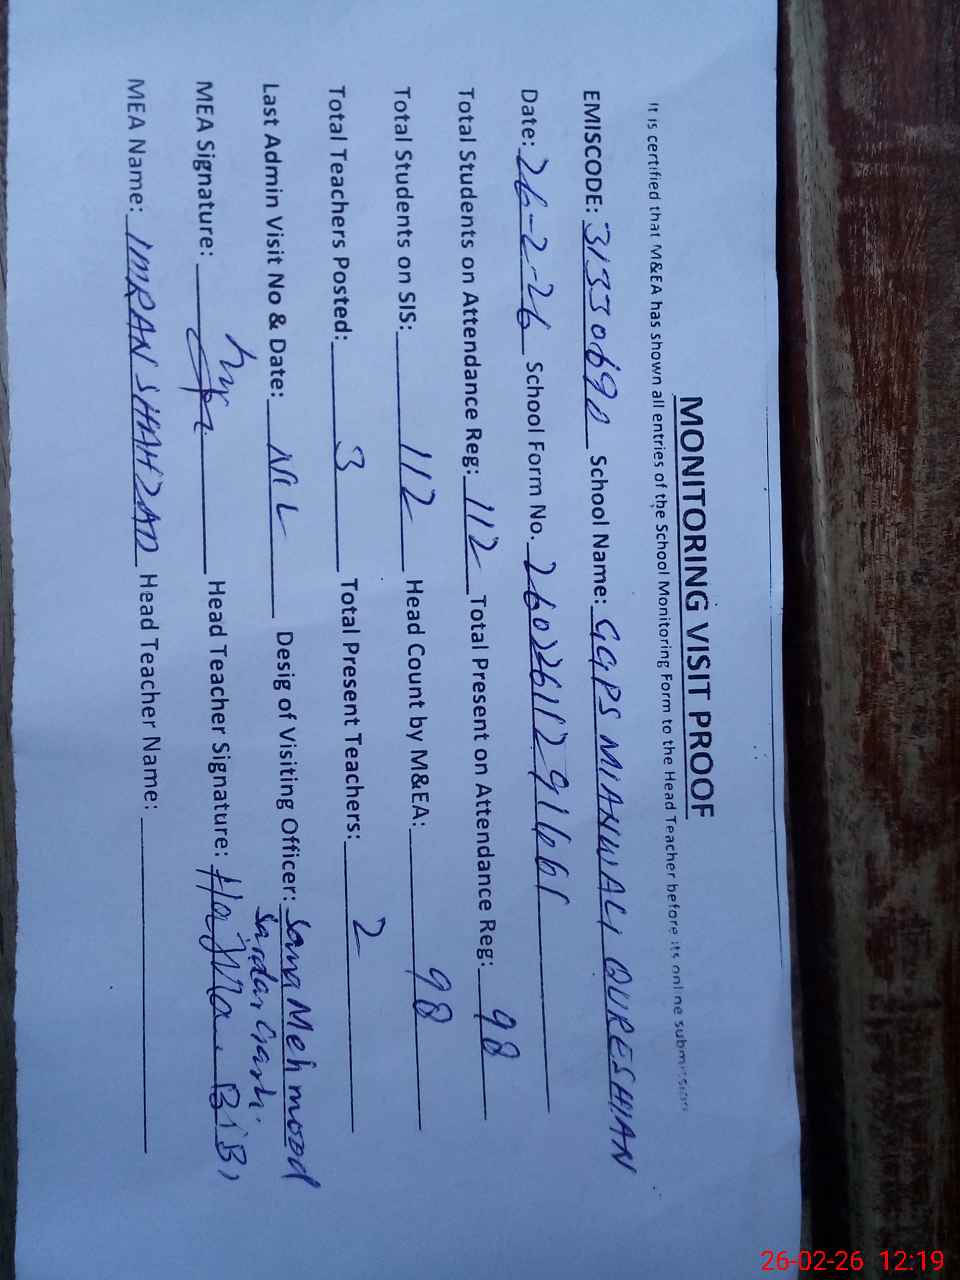 MONITORING VISIT PROOF
It is certified that M&EA has shown all entries of the School Monitoring Form to the Head Teacher before its online submission
EMISCODE: 31330690 School Name: GGPS MIANWALI QURESHIAN
Date: 26-2-26 School Form No. 26022611291661
Total Students on Attendance Reg: 112 Total Present on Attendance Reg: 98
Total Students on SIS: 112 Head Count by M&EA: 98
Total Teachers Posted: 3 Total Present Teachers: 2
Last Admin Visit No & Date: NIL Desig of Visiting Officer: Sana Mehmood
Sardar Garh.
MEA Signature: Head Teacher Signature: Hajra BiBi
MEA Name: IMRAN SHAHZAD Head Teacher Name:
26-02-26 12:19